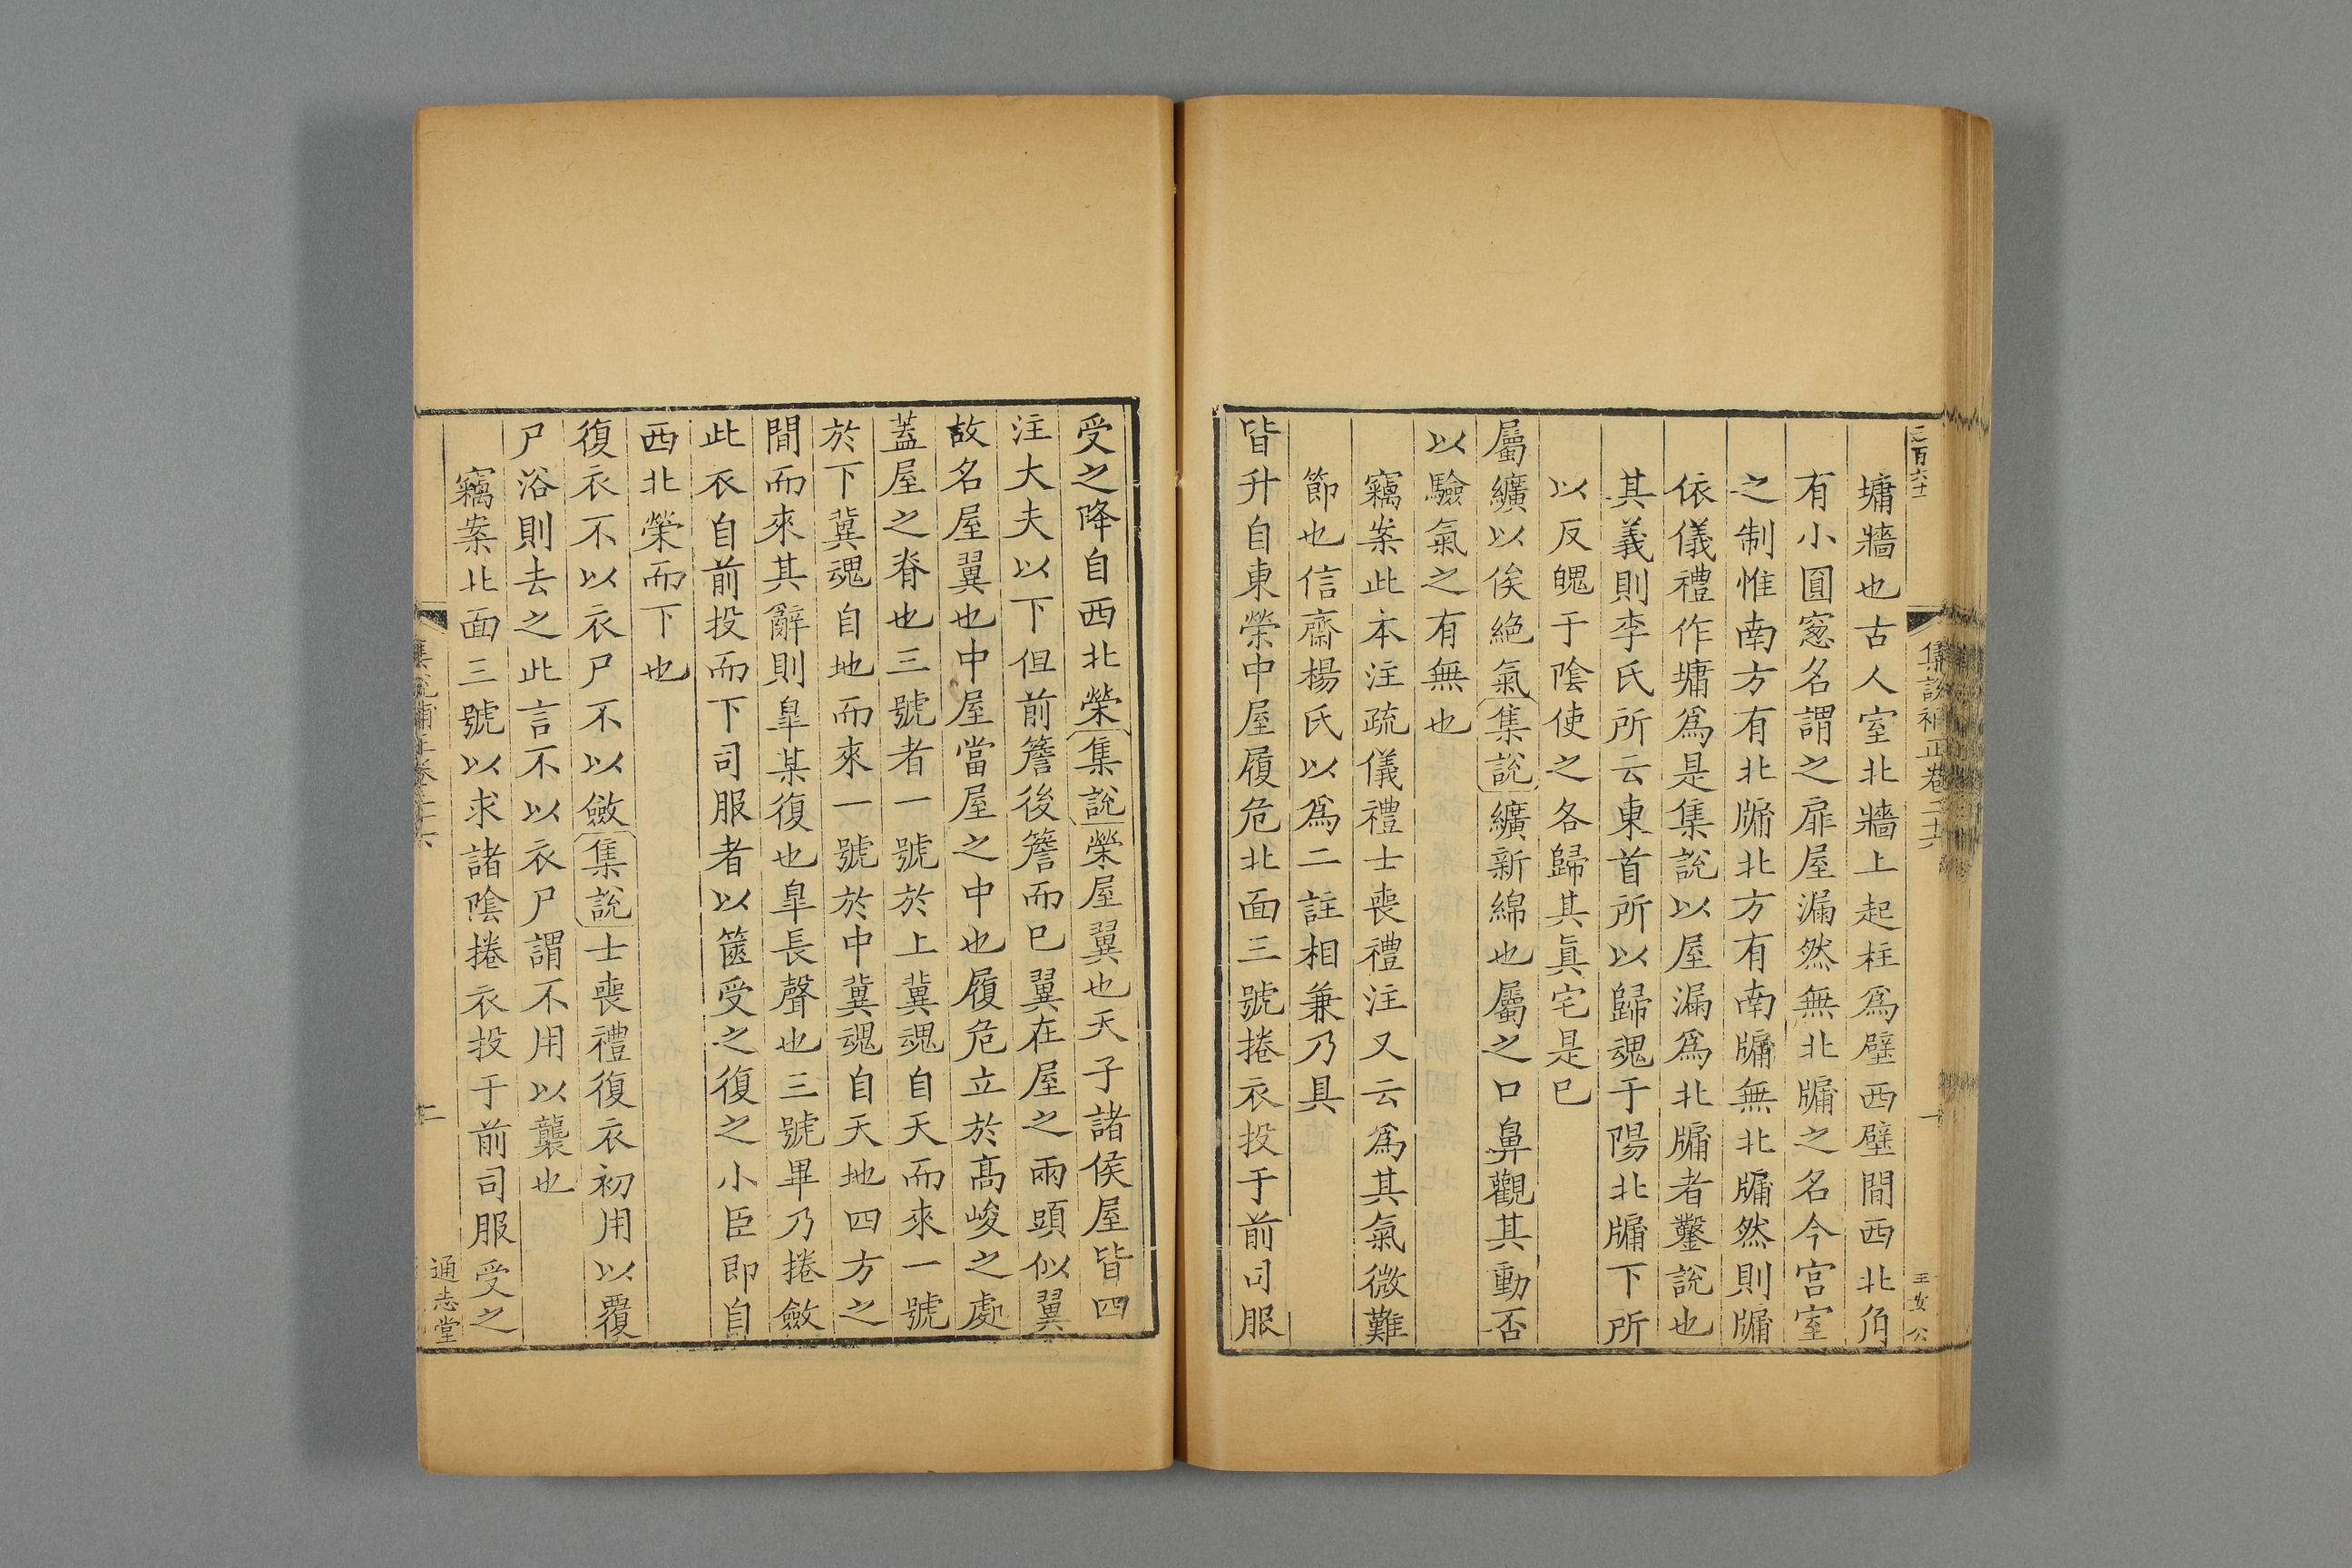 集說補正卷二十六
一
墉牆也古人室北牆上起柱爲壁西壁間西北角
有小圓窻名謂之扉屋漏然無北牗之名今宫室
之制惟南方有北牗北方有南牗無北牗然則牗
依儀禮作墉爲是集說以屋漏爲北牗者鑿說也
其義則李氏所云東首所以歸魂于陽北牗下所
以反魄于陰使之各歸其眞宅是已
屬纊以俟絕氣集說纊新綿也屬之口鼻觀其動否
以驗氣之有無也
竊案此本注疏儀禮士喪禮注又云爲其氣微難
節也信齋楊氏以爲二註相兼乃具
皆升自東榮中屋履危北面三號捲衣投于前司服
受之降自西北榮集說榮屋翼也天子諸侯屋皆四
注大夫以下但前簷後簷而已翼在屋之兩頭似翼
故名屋翼也中屋當屋之中也履危立於高峻之處
蓋屋之脊也三號者一號於上冀魂自天而來一號
於下冀魂自地而來一號於中冀魂自天地四方之
間而來其辭則臯某復也臯長聲也三號畢乃捲斂
此衣自前投而下司服者以篋受之復之小臣即自
西北榮而下也
復衣不以衣尸不以斂集說士喪禮復衣初用以覆
尸浴則去之此言不以衣尸謂不用以襲也
竊案北面三號以求諸陰捲衣投于前司服受之
通志堂